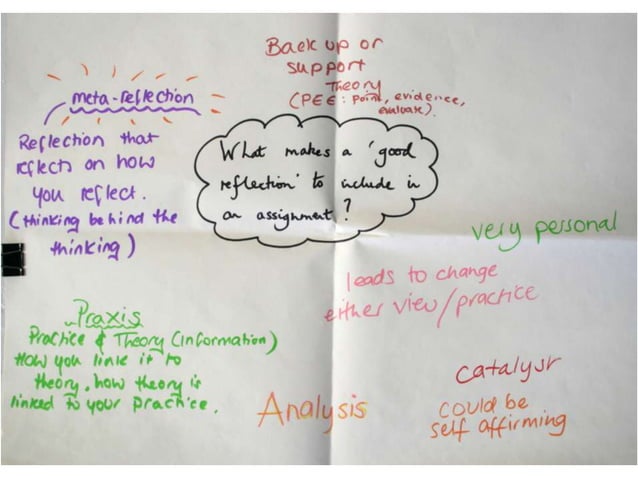 Back up or
support
Theory
(PEE: Point, evidence,
evaluate).
meta-reflection
Reflection that
reflects on how
you reflect.
(thinking behind the
thinking)
What makes a 'good
reflection' to include in
an assignment?
very personal
leads to change
either view/practice
Praxis
Practice & Theory (information)
How you link it to
theory, how theory is
linked to your practice.
Analysis
catalyst
could be
self affirming